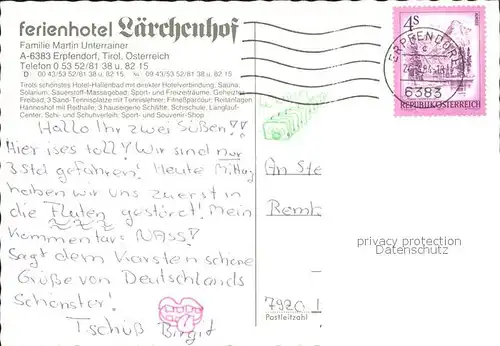 ferienhotel Lärchenhof
Familie Martin Unterrainer
A-6383 Erpfendorf, Tirol, Österreich
Telefon 0 53 52/81 38 u. 82 15
D 00 43/53 52/81 38 u. 82 15 NL 09 43/53 52/81 38 u. 82 15
Tirols schönstes Hotel-Hallenbad mit direkter Hotelverbindung; Sauna,
Solarium; Sauerstoff-Massagebad; Sport- und Freizeiträume, Geheiztes
Freibad, 3 Sand-Tennisplätze mit Tennislehrer; Fitneßparcour; Reitanlagen
Sonnenhof mit Reithalle; 3 hauseigene Schilifte; Schischule, Langlauf-
Center, Schi- und Schuhverleih; Sport- und Souvenir-Shop
Hallo Ihr zwei Süßen!!
Hier ises toll! Wir sind nur
3 Std gefahren! Heute Mittag
haben wir uns zuerst in
die Fluten gestürzt! Mein
Kommentar: NASS!
Sagt dem Karsten schöne
Grüße von Deutschlands
Schönster!
Tschüß Birgit
4 S
REPUBLIK ÖSTERREICH
ERPFENDORF
6383
An Ste
Romb
7920
Postleitzahl
privacy protection
Datenschutz